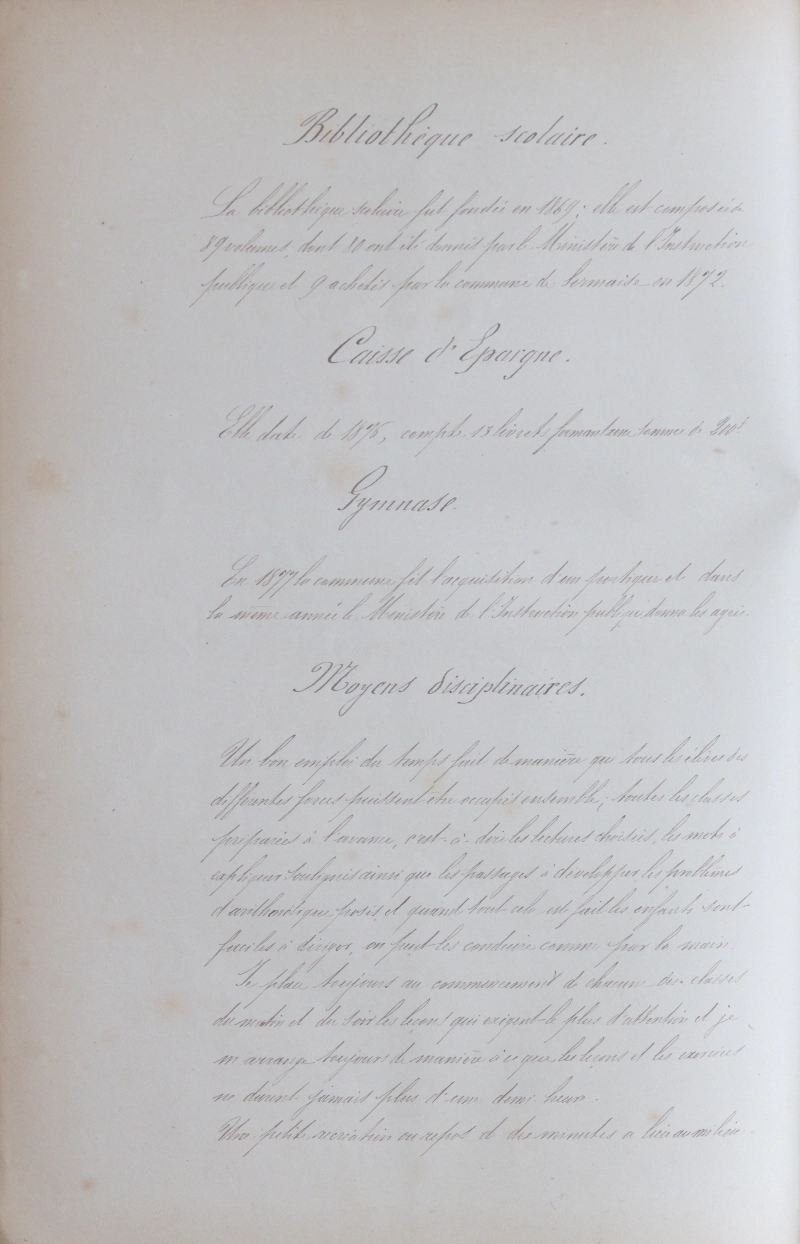 Bibliothèque scolaire.
La bibliothèque scolaire fut fondée en 1869; elle est composée de
89 volumes, dont 80 ont été donnés par le Ministère de l'Instruction
publique et 9 achetés par la commune de Sermaise en 1872.
Caisse d'Epargne.
Elle date de 1876, compte 13 livrets formant une somme de
Gymnase.
En 1877 la commune fit l'acquisition d'un portique et dans
la même année le Ministère de l'Instruction publique donna les agrès.
Moyens disciplinaires.
Un bon emploi du temps fait de manière que tous les élèves des
différentes forces puissent être occupés ensemble; toutes les classes
préparées à l'avance, c'est-à-dire les lectures choisies, les mots à
expliquer soulignés ainsi que les passages à développer, les problèmes
d'arithmétique posés, et quand tout cela est fait les enfants sont
faciles à diriger, on peut les conduire comme par la main.
Je place toujours au commencement de chacune des classes
du matin et du soir les leçons qui exigent le plus d'attention et je
m'arrange toujours de manière à ce que les leçons et les exercices
ne durent jamais plus d'une demi heure.
Une petite récréation ou repos de dix minutes a lieu au milieu